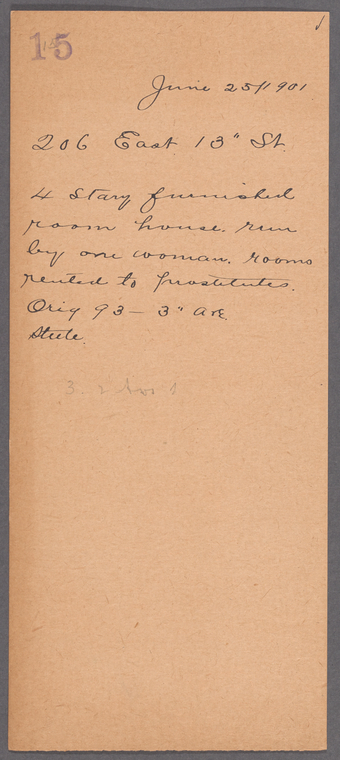 15
June 25/1901
206 East 13" St.
4 Story furnished
room house run
by one woman. rooms
rented to prostitutes.
Orig 93 - 3" Ave.
Steele.
3.